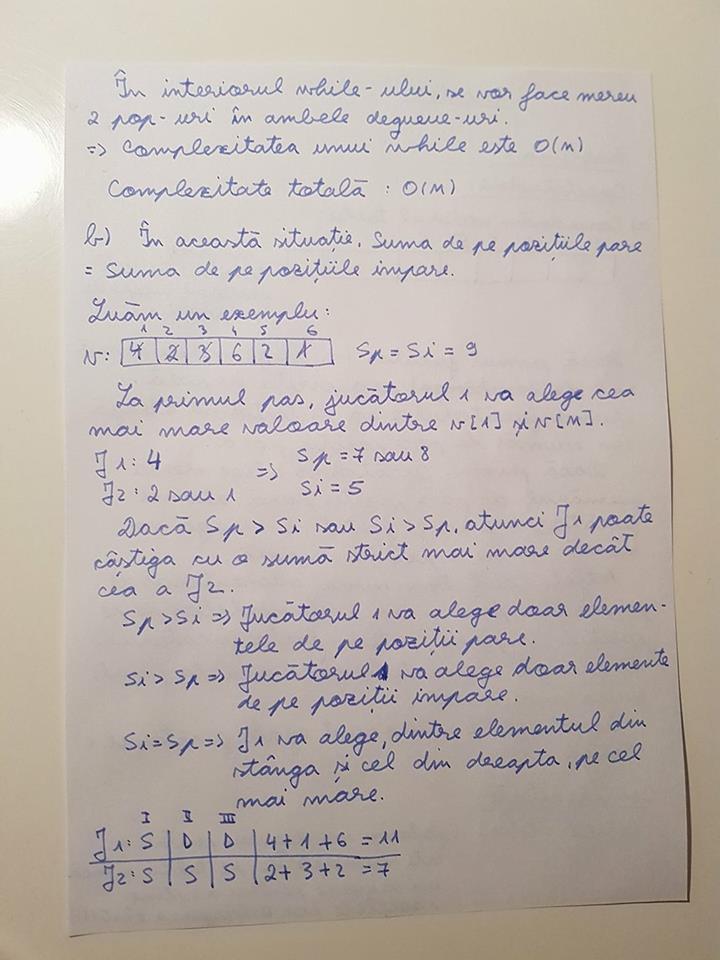 În interiorul while-ului, se vor face mereu
2 pop-uri în ambele degueue-uri.
=> Complexitatea unui while este O(n)
Complexitate totală : O(n)
b) În această situație, Suma de pe pozițiile pare
= Suma de pe pozițiile impare.
Luăm un exemplu:
1 2 3 4 5 6
v: 4 2 3 6 2 1 Sp = Si = 9
La primul pas, jucătorul 1 va alege cea
mai mare valoare dintre v[1] și v[n].
J1: 4 => Sp = 7 sau 8
J2: 2 sau 1 Si = 5
Dacă Sp > Si sau Si > Sp, atunci J1 poate
câștiga cu o sumă strict mai mare decât
cea a J2.
Sp > Si => Jucătorul 1 va alege doar elemen-
tele de pe poziții pare.
Si > Sp => Jucătorul 1 va alege doar elemente
de pe poziții impare.
Si = Sp => J1 va alege, dintre elementul din
stânga și cel din dreapta, pe cel
mai mare.
I II III
J1: S D D 4+1+6 = 11
J2: S S S 2+3+2 = 7